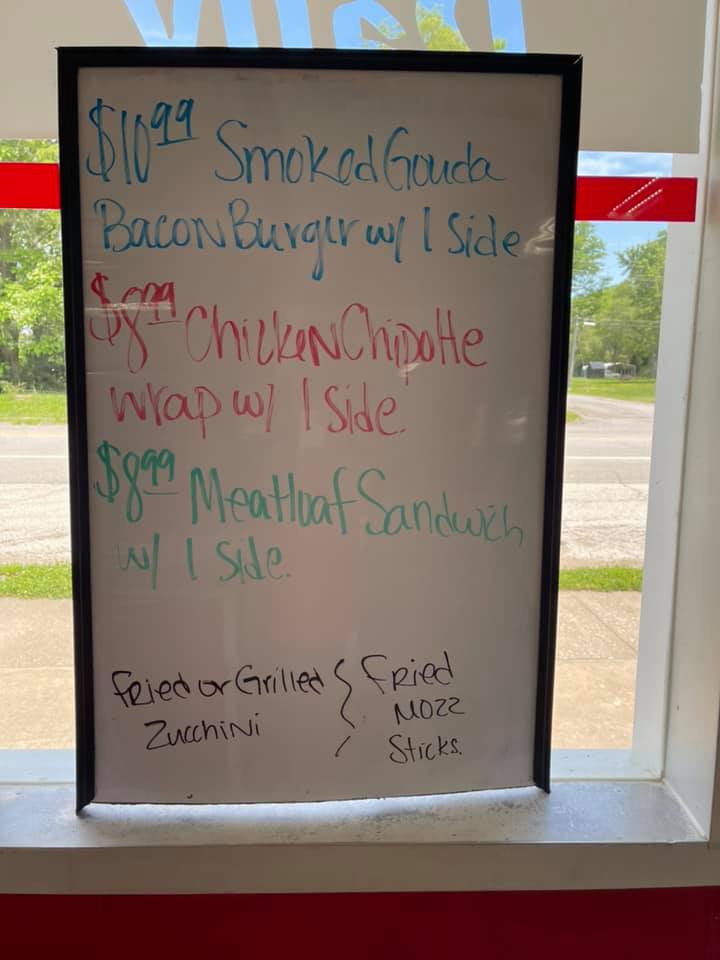 $10.99 Smoked Gouda
Bacon Burger w/ 1 Side
$8.99 Chicken Chipotle
wrap w/ 1 Side.
$8.99 Meatloaf Sandwich
w/ 1 Side.
Fried or Grilled
Zucchini
Fried
Mozz
Sticks.